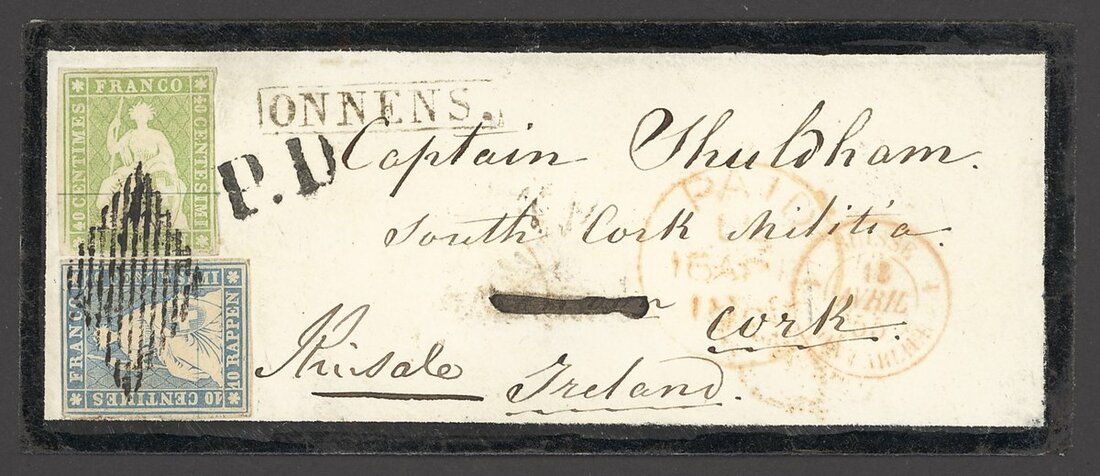 FRANCO
40 CENTIMES
40 CENTESIMI
ONNENS.
P.D
Captain Shuldham.
South Cork Militia.
Cork.
Kinsale
Ireland.
FRANCO
10 RAPPEN
10 CENTIMES
PAID
15 AP
SUISSE
13
AVRIL